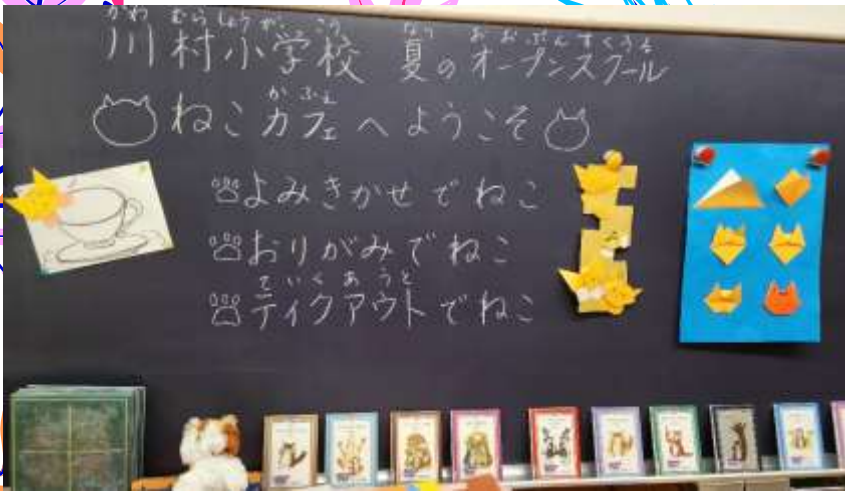 かわ むらしょうがっこう なつ おおぷんすくうる
川村小学校 夏のオープンスクール
かふぇ
ねこカフェへようこそ
よみきかせでねこ
おりがみでねこ
ていくあうと
ティクアウトでねこ